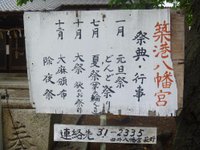 築港八幡宮
祭典・行事
一月 元旦祭
どんど祭
七月 夏祭
十月 大祭
秋のお祭り
十二月 大麻頒布
除夜祭
連絡先 31-2335